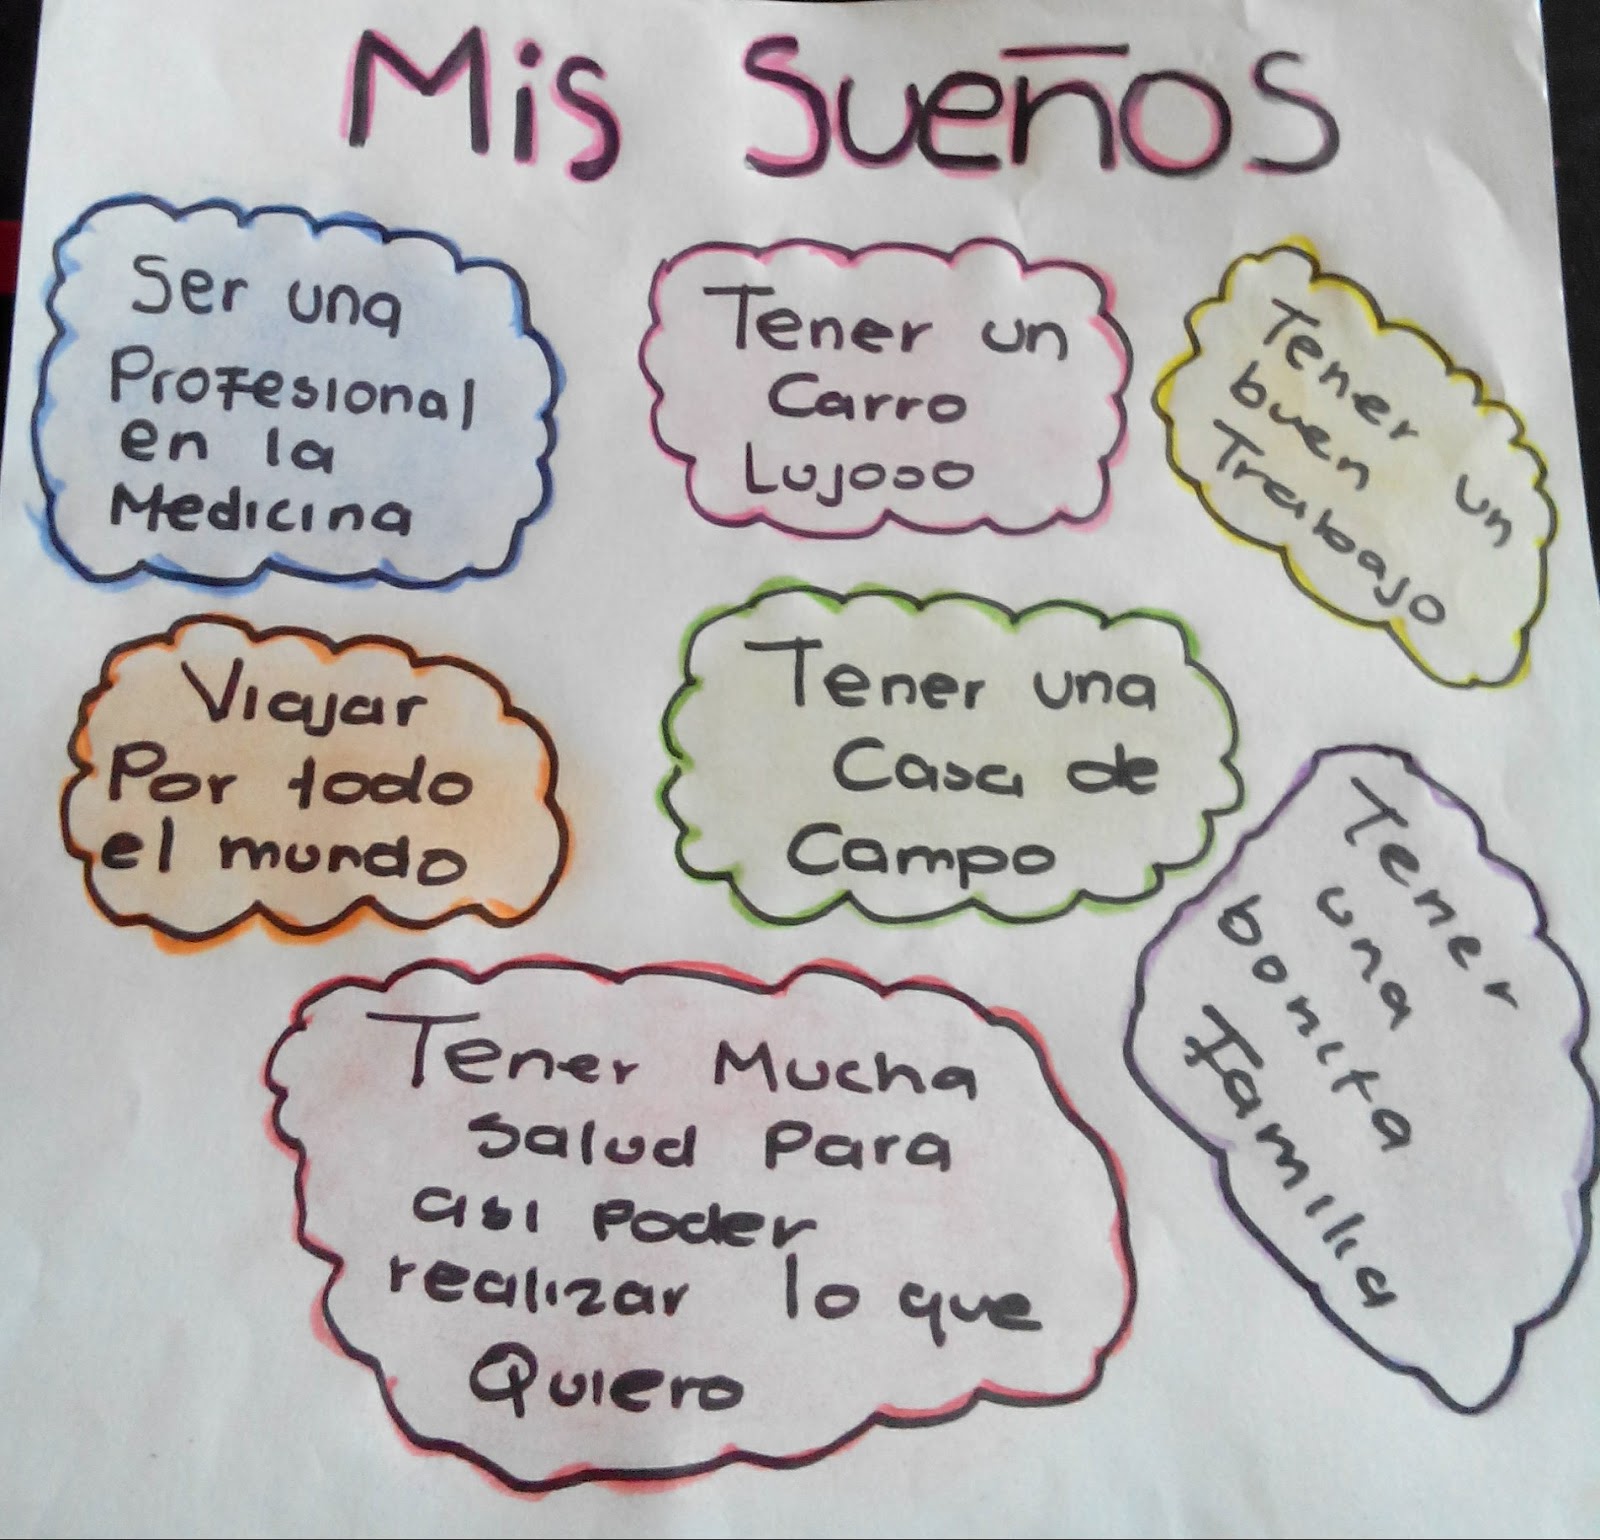 Mis Sueños
Ser una
Profesional
en la
Medicina
Tener un
Carro
Lujoso
Tener un
buen
Trabajo
Viajar
Por todo
el mundo
Tener una
Casa de
Campo
Tener
una
bonita
Familia
Tener Mucha
Salud Para
asi Poder
realizar lo que
Quiero